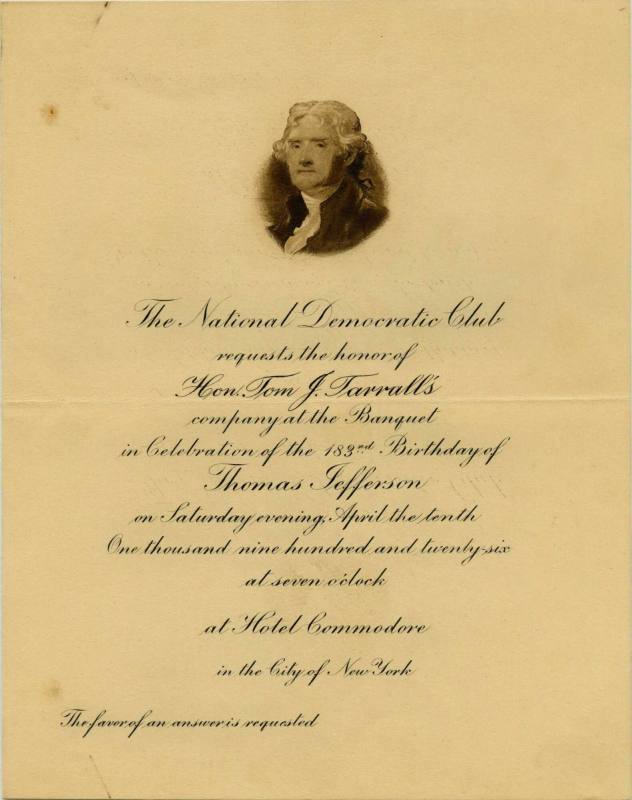 The National Democratic Club
requests the honor of
Hon. Tom J. Tarrall's
company at the Banquet
in Celebration of the 183rd Birthday of
Thomas Jefferson
on Saturday evening, April the tenth
One thousand nine hundred and twenty-six
at seven o'clock
at Hotel Commodore
in the City of New York
The favor of an answer is requested